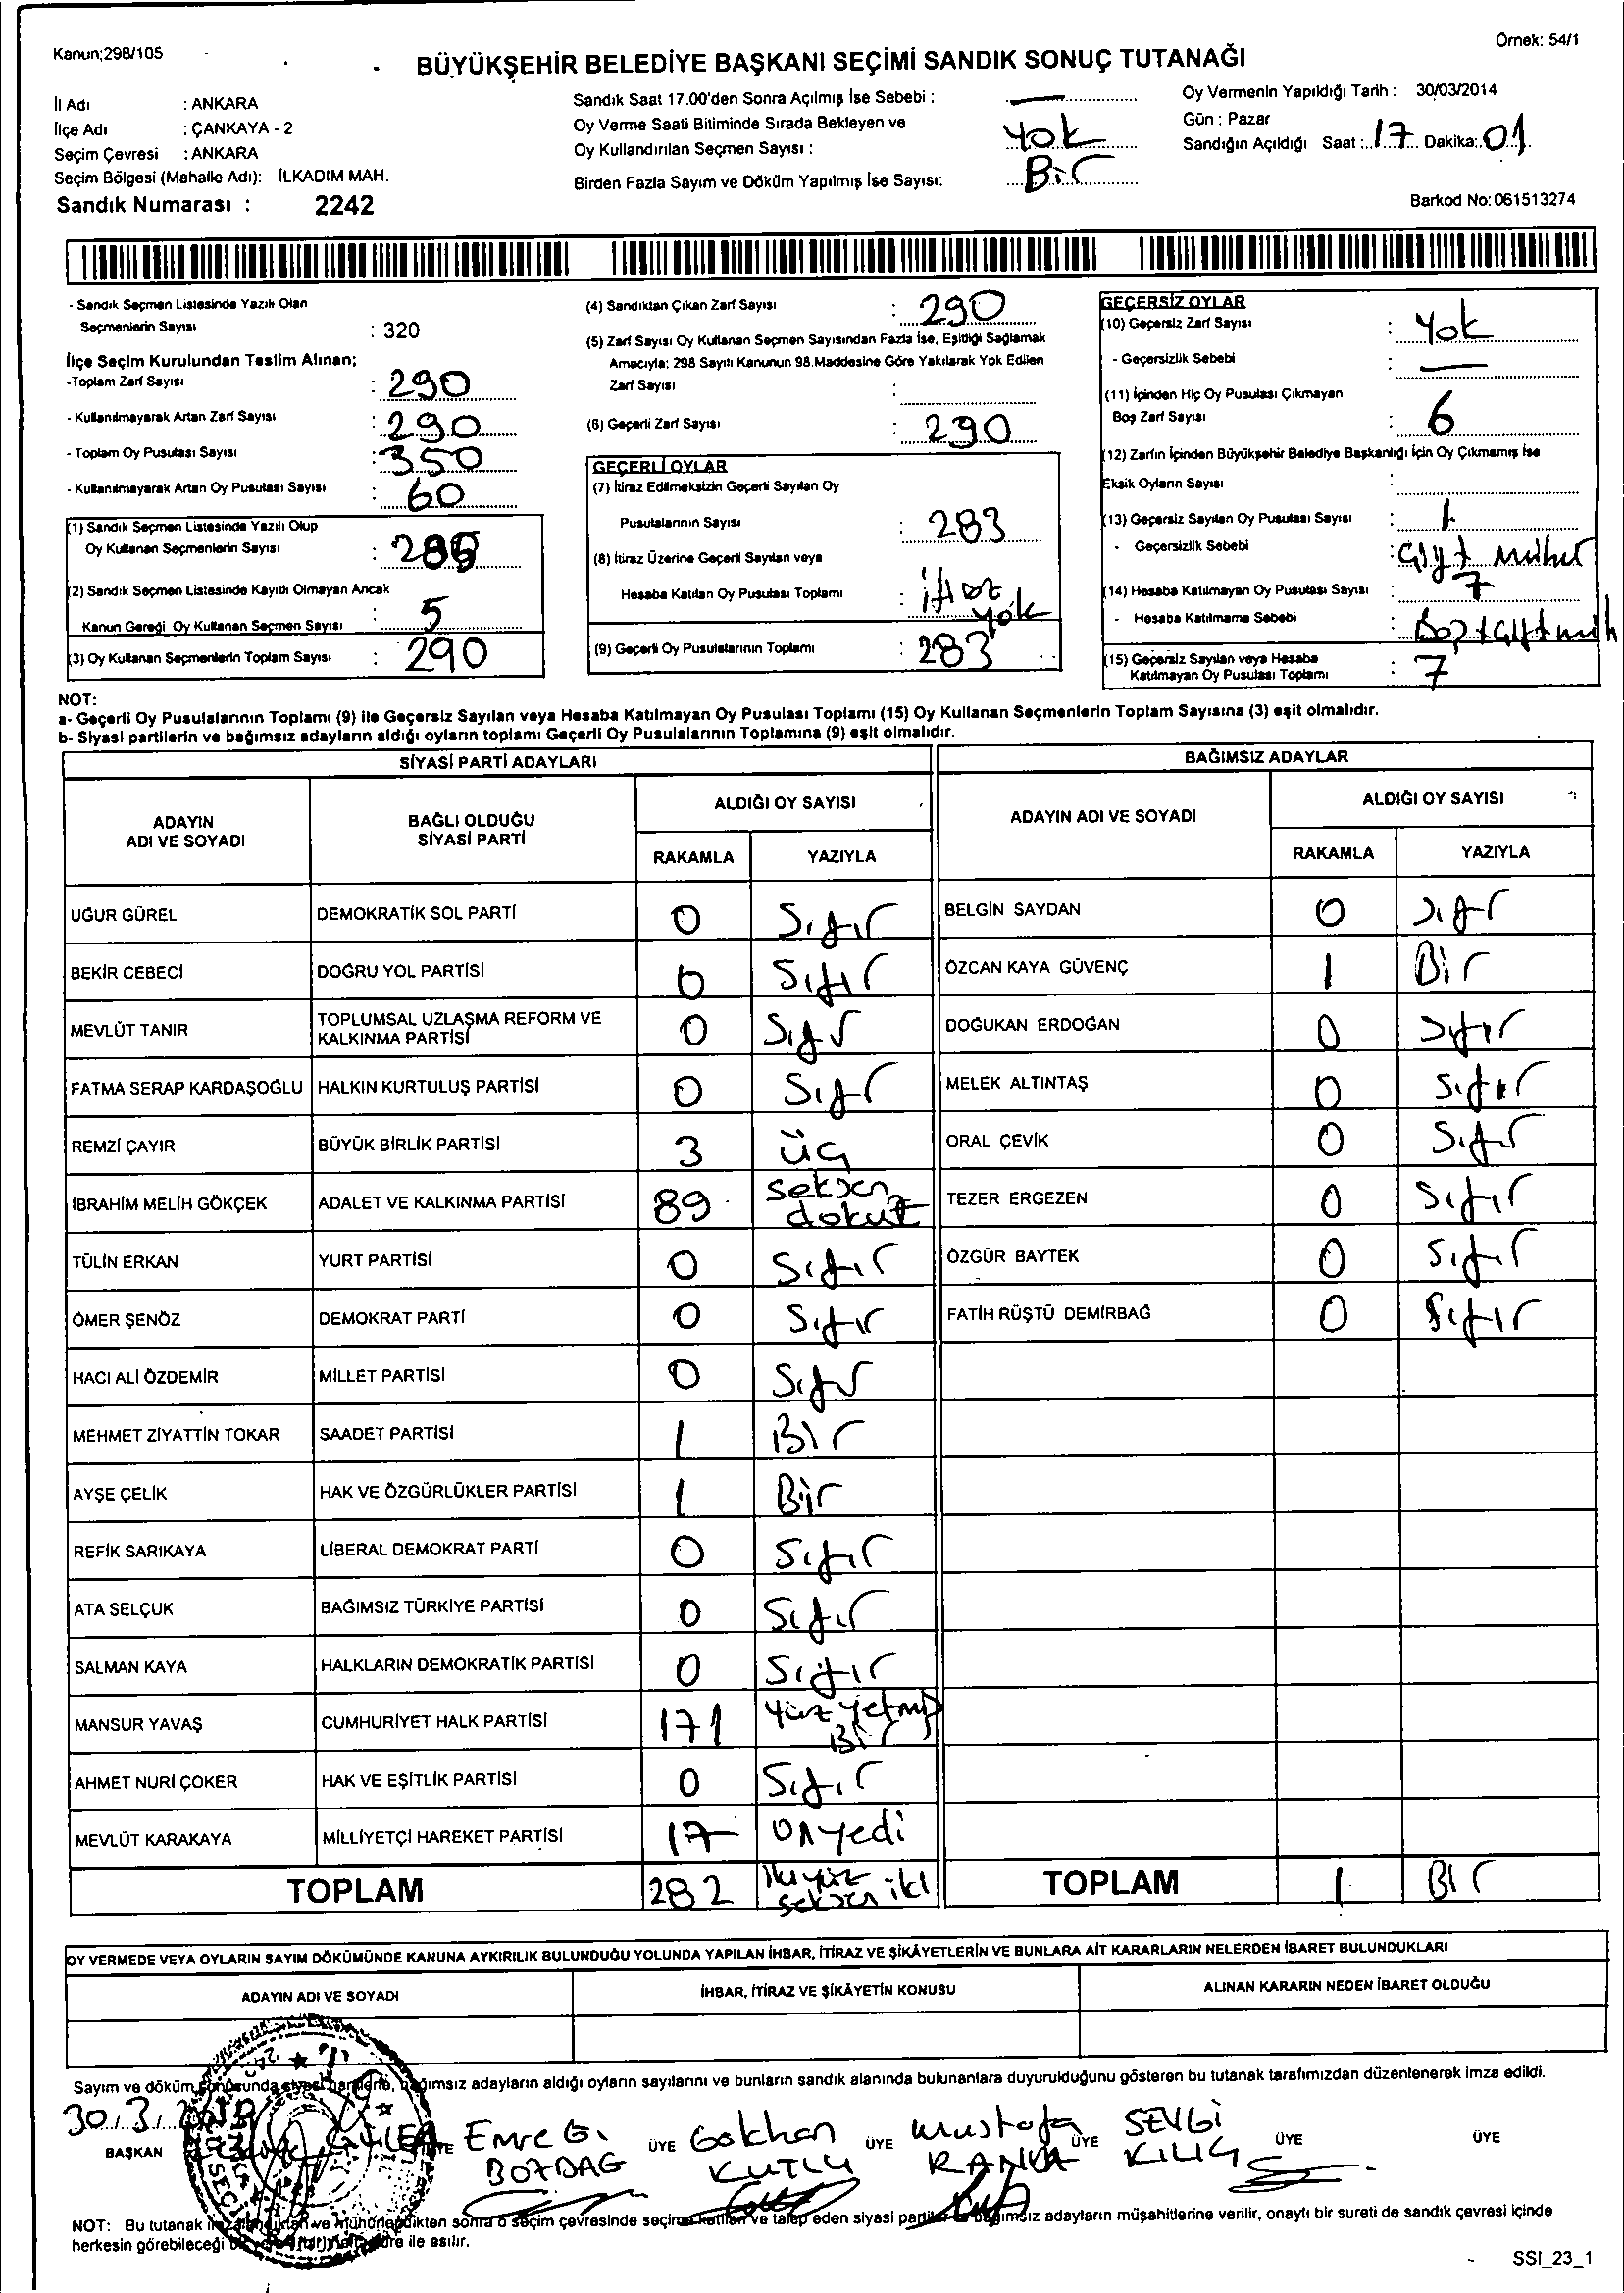 Kanun;298/105
Örnek: 54/1
BÜYÜKŞEHİR BELEDİYE BAŞKANI SEÇİMİ SANDIK SONUÇ TUTANAĞI
İl Adı : ANKARA
İlçe Adı : ÇANKAYA - 2
Seçim Çevresi : ANKARA
Seçim Bölgesi (Mahalle Adı): İLKADIM MAH.
Sandık Numarası : 2242
Sandık Saat 17.00'den Sonra Açılmış İse Sebebi : —
Oy Verme Saati Bitiminde Sırada Bekleyen ve
Oy Kullandırılan Seçmen Sayısı : Yok
Birden Fazla Sayım ve Döküm Yapılmış İse Sayısı: Bir
Oy Vermenin Yapıldığı Tarih : 30/03/2014
Gün : Pazar
Sandığın Açıldığı Saat : 17 Dakika: 01
Barkod No: 061513274
- Sandık Seçmen Listesinde Yazılı Olan
Seçmenlerin Sayısı : 320
İlçe Seçim Kurulundan Teslim Alınan;
-Toplam Zarf Sayısı : 290
- Kullanılmayarak Artan Zarf Sayısı : 290
- Toplam Oy Pusulası Sayısı : 350
- Kullanılmayarak Artan Oy Pusulası Sayısı : 60
(1) Sandık Seçmen Listesinde Yazılı Olup
Oy Kullanan Seçmenlerin Sayısı : 285
(2) Sandık Seçmen Listesinde Kayıtlı Olmayan Ancak
Kanun Gereği Oy Kullanan Seçmen Sayısı : 5
(3) Oy Kullanan Seçmenlerin Toplam Sayısı : 290
(4) Sandıktan Çıkan Zarf Sayısı : 290
(5) Zarf Sayısı Oy Kullanan Seçmen Sayısından Fazla İse, Eşitliği Sağlamak
Amacıyla; 298 Sayılı Kanunun 98.Maddesine Göre Yakılarak Yok Edilen
Zarf Sayısı :
(6) Geçerli Zarf Sayısı : 290
GEÇERLİ OYLAR
(7) İtiraz Edilmeksizin Geçerli Sayılan Oy
Pusulalarının Sayısı : 283
(8) İtiraz Üzerine Geçerli Sayılan veya
Hesaba Katılan Oy Pusulası Toplamı : itiraz
yok
(9) Geçerli Oy Pusulalarının Toplamı : 283
GEÇERSİZ OYLAR
(10) Geçersiz Zarf Sayısı : Yok
- Geçersizlik Sebebi : —
(11) İçinden Hiç Oy Pusulası Çıkmayan
Boş Zarf Sayısı : 6
(12) Zarfın İçinden Büyükşehir Belediye Başkanlığı İçin Oy Çıkmamış İse
Eksik Oyların Sayısı :
(13) Geçersiz Sayılan Oy Pusulası Sayısı : 1
- Geçersizlik Sebebi : Çift mühür
(14) Hesaba Katılmayan Oy Pusulası Sayısı : 7
- Hesaba Katılmama Sebebi :
(15) Geçersiz Sayılan veya Hesaba
Katılmayan Oy Pusulası Toplamı : 7
NOT:
a- Geçerli Oy Pusulalarının Toplamı (9) ile Geçersiz Sayılan veya Hesaba Katılmayan Oy Pusulası Toplamı (15) Oy Kullanan Seçmenlerin Toplam Sayısına (3) eşit olmalıdır.
b- Siyasi partilerin ve bağımsız adayların aldığı oyların toplamı Geçerli Oy Pusulalarının Toplamına (9) eşit olmalıdır.
SİYASİ PARTİ ADAYLARI
ADAYIN
ADI VE SOYADI
BAĞLI OLDUĞU
SİYASİ PARTİ
ALDIĞI OY SAYISI
RAKAMLA YAZIYLA
UĞUR GÜREL DEMOKRATİK SOL PARTİ 0 Sıfır
BEKİR CEBECİ DOĞRU YOL PARTİSİ 0 Sıfır
MEVLÜT TANIR TOPLUMSAL UZLAŞMA REFORM VE
KALKINMA PARTİSİ 0 Sıfır
FATMA SERAP KARDAŞOĞLU HALKIN KURTULUŞ PARTİSİ 0 Sıfır
REMZİ ÇAYIR BÜYÜK BİRLİK PARTİSİ 3 üç
İBRAHİM MELİH GÖKÇEK ADALET VE KALKINMA PARTİSİ 89 seksen
dokuz
TÜLİN ERKAN YURT PARTİSİ 0 Sıfır
ÖMER ŞENÖZ DEMOKRAT PARTİ 0 Sıfır
HACI ALİ ÖZDEMİR MİLLET PARTİSİ 0 Sıfır
MEHMET ZİYATTİN TOKAR SAADET PARTİSİ 1 Bir
AYŞE ÇELİK HAK VE ÖZGÜRLÜKLER PARTİSİ 1 Bir
REFİK SARIKAYA LİBERAL DEMOKRAT PARTİ 0 Sıfır
ATA SELÇUK BAĞIMSIZ TÜRKİYE PARTİSİ 0 Sıfır
SALMAN KAYA HALKLARIN DEMOKRATİK PARTİSİ 0 Sıfır
MANSUR YAVAŞ CUMHURİYET HALK PARTİSİ 171 Yüz yetmiş
Bir
AHMET NURİ ÇOKER HAK VE EŞİTLİK PARTİSİ 0 Sıfır
MEVLÜT KARAKAYA MİLLİYETÇİ HAREKET PARTİSİ 17 Onyedi
TOPLAM 282 İkiyüz
seksen iki
BAĞIMSIZ ADAYLAR
ADAYIN ADI VE SOYADI
ALDIĞI OY SAYISI
RAKAMLA YAZIYLA
BELGİN SAYDAN 0 Sıfır
ÖZCAN KAYA GÜVENÇ 1 Bir
DOĞUKAN ERDOĞAN 0 Sıfır
MELEK ALTINTAŞ 0 Sıfır
ORAL ÇEVİK 0 Sıfır
TEZER ERGEZEN 0 Sıfır
ÖZGÜR BAYTEK 0 Sıfır
FATİH RÜŞTÜ DEMİRBAĞ 0 Sıfır
TOPLAM 1 Bir
OY VERMEDE VEYA OYLARIN SAYIM DÖKÜMÜNDE KANUNA AYKIRILIK BULUNDUĞU YOLUNDA YAPILAN İHBAR, İTİRAZ VE ŞİKÂYETLERİN VE BUNLARA AİT KARARLARIN NELERDEN İBARET BULUNDUKLARI
ADAYIN ADI VE SOYADI İHBAR, İTİRAZ VE ŞİKÂYETİN KONUSU ALINAN KARARIN NEDEN İBARET OLDUĞU
Sayım ve döküm sonucunda siyasi partilerle, bağımsız adayların aldığı oyların sayılarını ve bunların sandık alanında bulunanlara duyurulduğunu gösteren bu tutanak tarafımızdan düzenlenerek imza edildi.
30.3.
BAŞKAN ÜYE ÜYE ÜYE ÜYE ÜYE
Emre G. Gökhan Mustafa SEVGİ
BOZDAG KUTLU KILIÇ
NOT: Bu tutanak imzalandıktan ve mühürlendikten sonra o seçim çevresinde seçime katılan ve talep eden siyasi partiler ile bağımsız adayların müşahitlerine verilir, onaylı bir sureti de sandık çevresi içinde
herkesin görebileceği ile asılır.
SSI_23_1